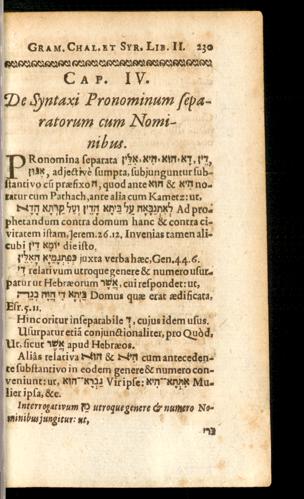 GRAM. CHAL. ET SYR. LIB. II. 230
CAP. IV.
De Syntaxi Pronominum sepa-
ratorum cum Nomi-
nibus.
PRonomina separata דֵּין, דָּא, הוּא, הִיא, אִלֵּין,
אִנּוּן, adjectivè sumpta, subjunguntur sub-
stantivo cũ præfixo ה, quod ante הוּא & הִיא no-
tatur cum Pathach, ante alia cum Kametz: ut,
Ad pro-
phetandum contra domum hanc & contra ci-
vitatem istam, Jerem. 26.12. Invenias tamen ali-
cubi יוֹמָא דֵין die isto.
juxta verba hæc, Gen. 44.6.
דִּי relativum utroque genere & numero usur-
patur ut Hebræorum אֲשֶׁר, cui respondet: ut,
Domus quæ erat ædificata,
Esr. 5.11.
Hinc oritur inseparabile דְּ, cujus idem usus.
Usurpatur etiã conjunctionaliter, pro Quòd,
Ut. sicut אֲשֶׁר apud Hebræos.
Aliàs relativa הוּא & הִיא cum anteceden-
te substantivo in eodem genere & numero con-
veniunt: ut, גַּבְרָא הוּא Vir ipse: אִתְּתָא הִיא Mu-
lier ipsa, &c.
Interrogativum מָן utroque genere & numero No-
minibus jungitur: ut,